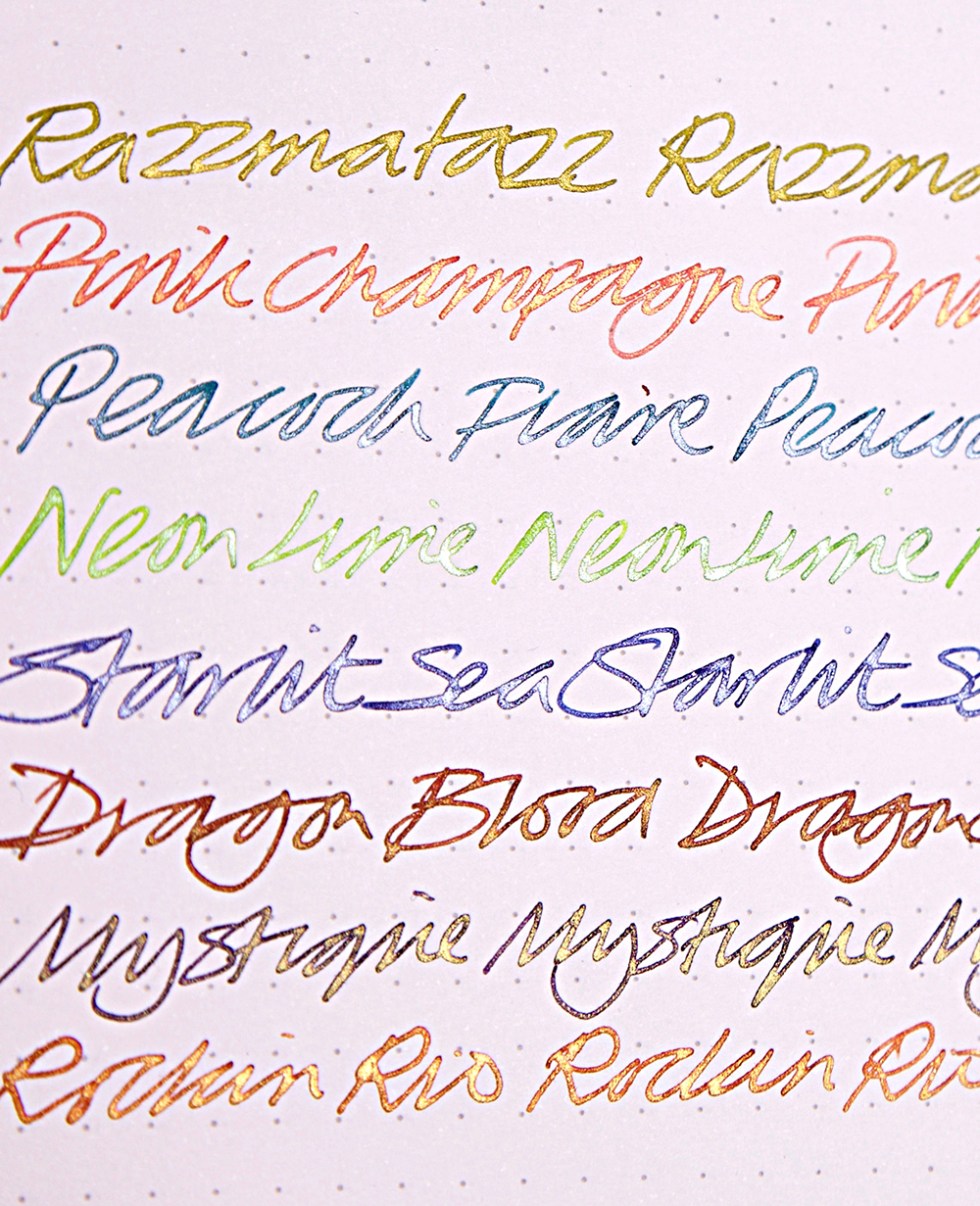 Razzmatazz Razzma
Pink Champagne Pink
Peacock Flaire Peacoc
Neon Lime Neon Lime N
Starlit Sea Starlit Se
Dragon Blood Dragon
Mystique Mystique My
Rockin Rio Rockin Rio